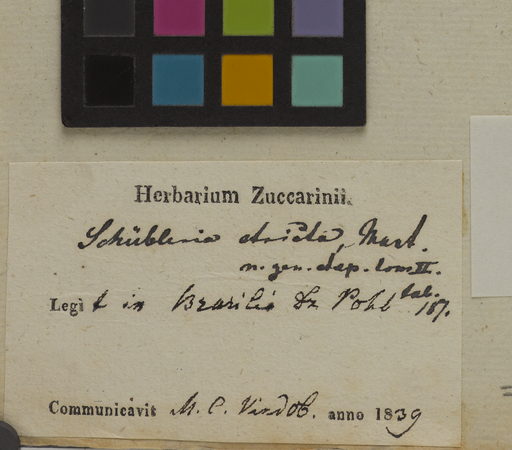 Herbarium Zuccarinii.
Schübleria stricta, Mart.
n. gen. et sp. tom. II.
tab. 187.
Legit in Brasilia Dr Pohl
Communicavit M. C. Vindob. anno 1839